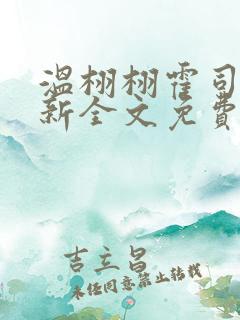 温栩栩霍司
新全文免费
吉立昌
未经同意禁止转载